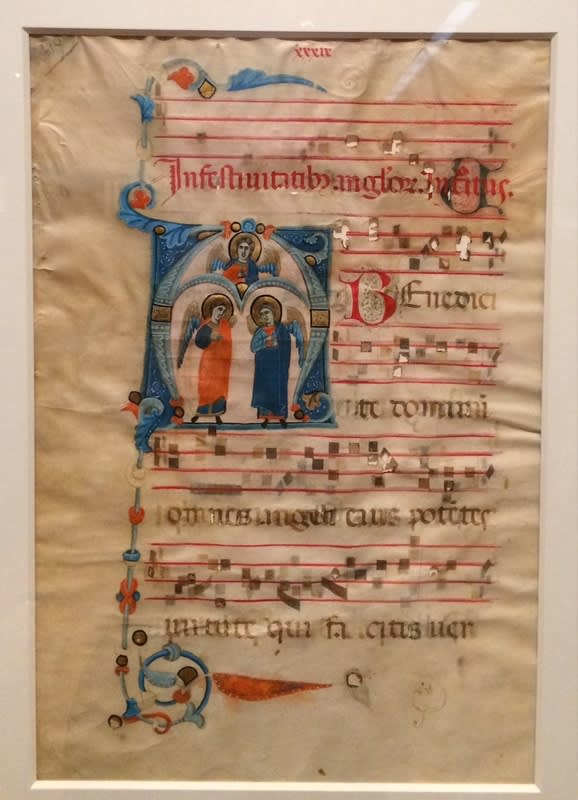 xxxix
In festiuitatibȝ angl'or. Introitus.
Benedici
te domini
omnes angeli eius potētes
uirtute qui fa citis uer